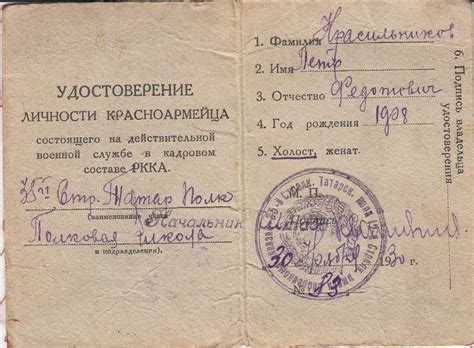 УДОСТОВЕРЕНИЕ
ЛИЧНОСТИ КРАСНОАРМЕЙЦА
состоящего на действительной
военной службе в кадровом
составе РККА.
Стр. Татар Полк
(наименование
Полковая школа
и подразделения).
1. Фамилия Красильников
2. Имя Петр
3. Отчество Федотович
4. Год рождения 1908
5. Холост, женат.
М. П.
Начальник
Подпись
30 1930 г.
№ 83.
6. Подпись владельца
удостоверения